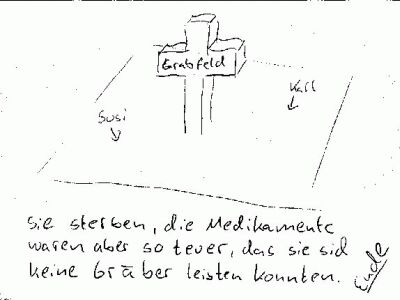 Grabfeld
Karl
Susi
sie sterben, die Medikamente
waren aber so teuer, das sie sid
keine Gräber leisten konnten.
Ende